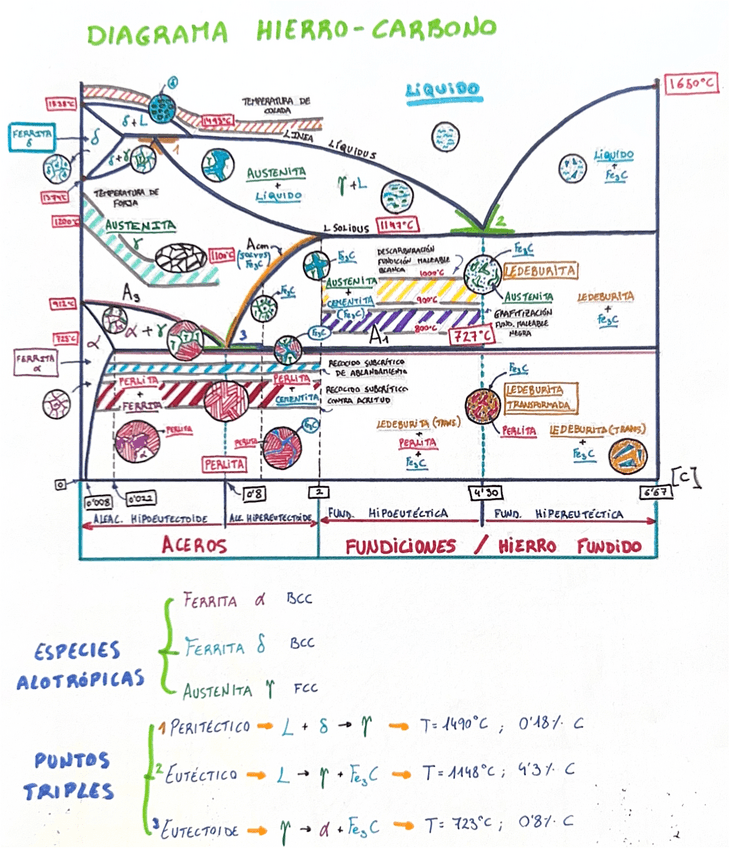 DIAGRAMA HIERRO-CARBONO
1538°C
δ+L
δ
TEMPERATURA DE
COLADA
1493°C
LÍNEA LÍQUIDUS
LÍQUIDO
1650°C
FERRITA
δ
δ
δ+γ
1
γ
AUSTENITA
+
LÍQUIDO
γ+L
LÍQUIDO
+
Fe3C
TEMPERATURA DE
FORJA
1200°C
AUSTENITA
γ
1100°C
Acm
Fe3C
L SOLIDUS
1147°C
2
Fe3C
DESCARBURACIÓN
FUNDICIÓN MALEABLE
BLANCA
1000°C
Fe3C
LEDEBURITA
AUSTENITA
+
CEMENTITA
(Fe3C)
900°C
AUSTENITA
LEDEBURITA
+
Fe3C
GRAFITIZACIÓN
FUND. MALEABLE
NEGRA
800°C
A1
727°C
912°C
A3
α+γ
Fe3C
3
Fe3C
α
FERRITA
α
RECOCIDO SUBCRÍTICO
DE ABLANDAMIENTO
PERLITA
+
FERRITA
PERLITA
+
CEMENTITA
RECOCIDO SUBCRÍTICO
CONTRA ACRITUD
Fe3C
LEDEBURITA
TRANSFORMADA
PERLITA
PERLITA
α
PERLITA
Fe3C
PERLITA
LEDEBURITA (TRANS)
+
PERLITA
+
Fe3C
LEDEBURITA (TRANS)
+
Fe3C
0
0'008
0'022
0'8
2
4'30
6'67
[C]
ALEAC. HIPOEUTECTOIDE
ALE. HIPEREUTECTOIDE
FUND. HIPOEUTÉCTICA
FUND. HIPEREUTÉCTICA
ACEROS
FUNDICIONES / HIERRO FUNDIDO
ESPECIES
ALOTRÓPICAS
FERRITA α BCC
FERRITA δ BCC
AUSTENITA γ FCC
PUNTOS
TRIPLES
1 PERITÉCTICO → L + δ → γ → T=1490°C ; 0'18% C
2 EUTÉCTICO → L → γ + Fe3C → T=1148°C ; 4'3% C
3 EUTECTOIDE → γ → α + Fe3C → T=723°C ; 0'8% C